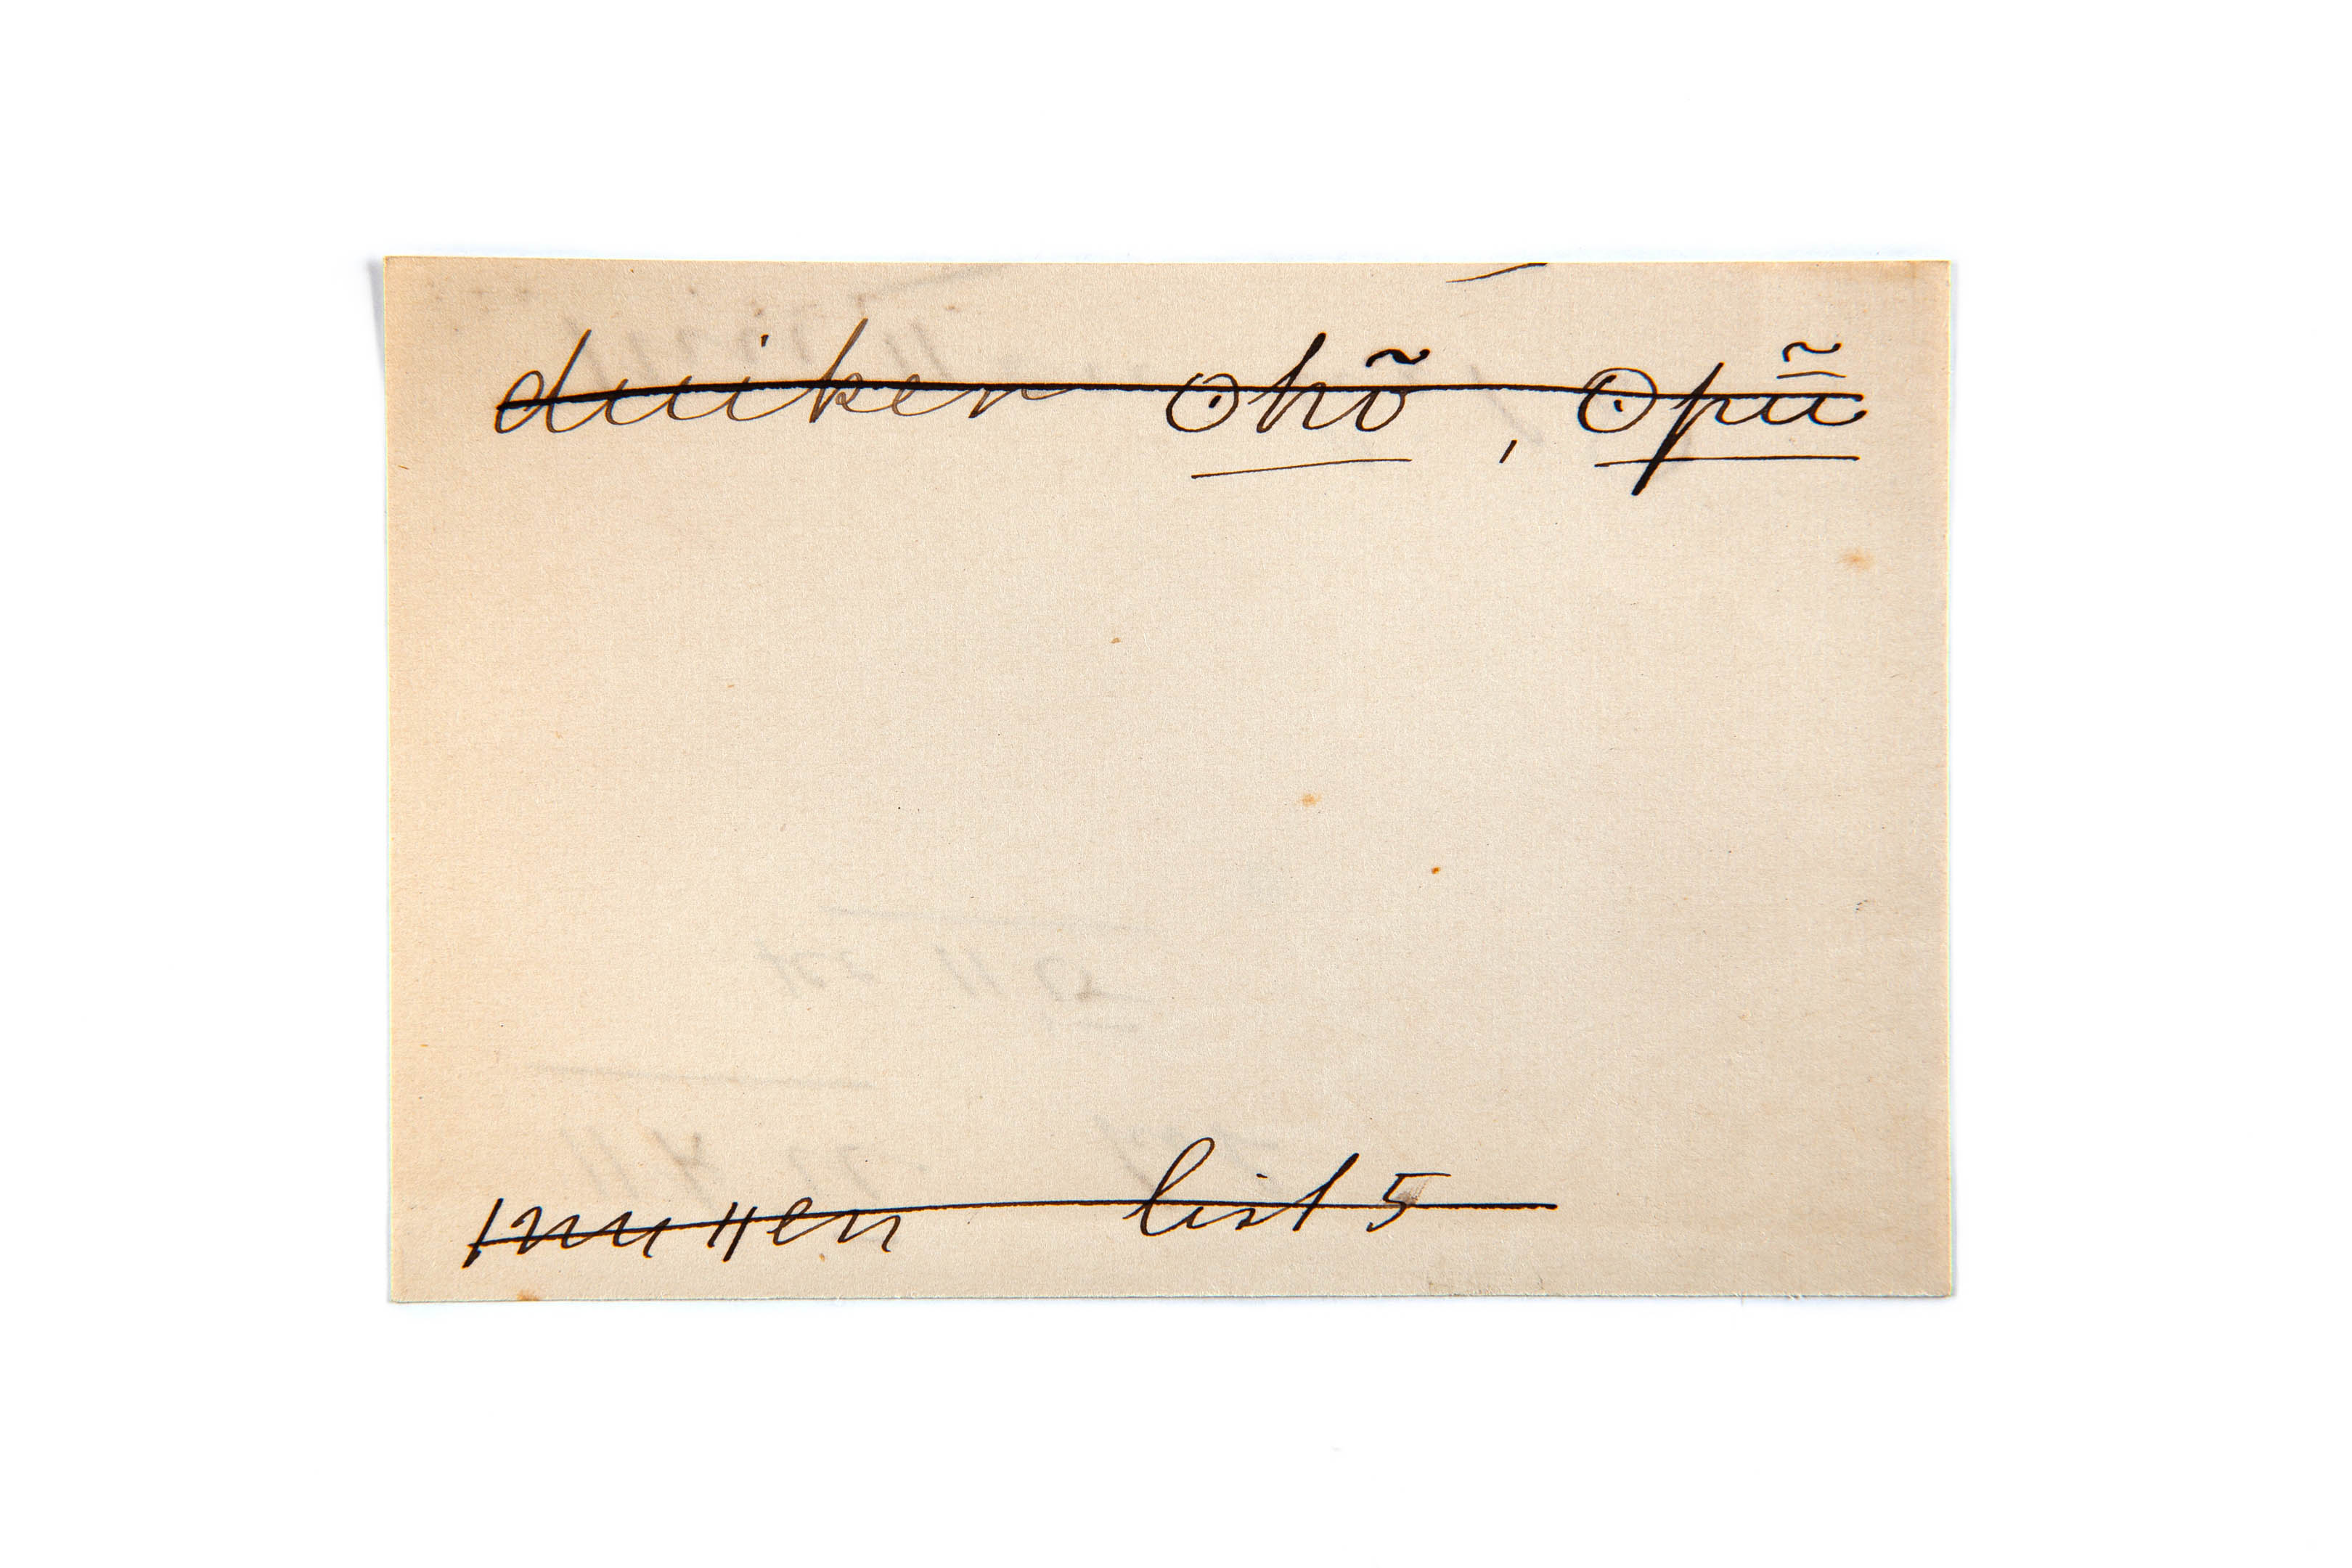 duiker ʘhõ, ʘpũ̄
|nu||en list 5